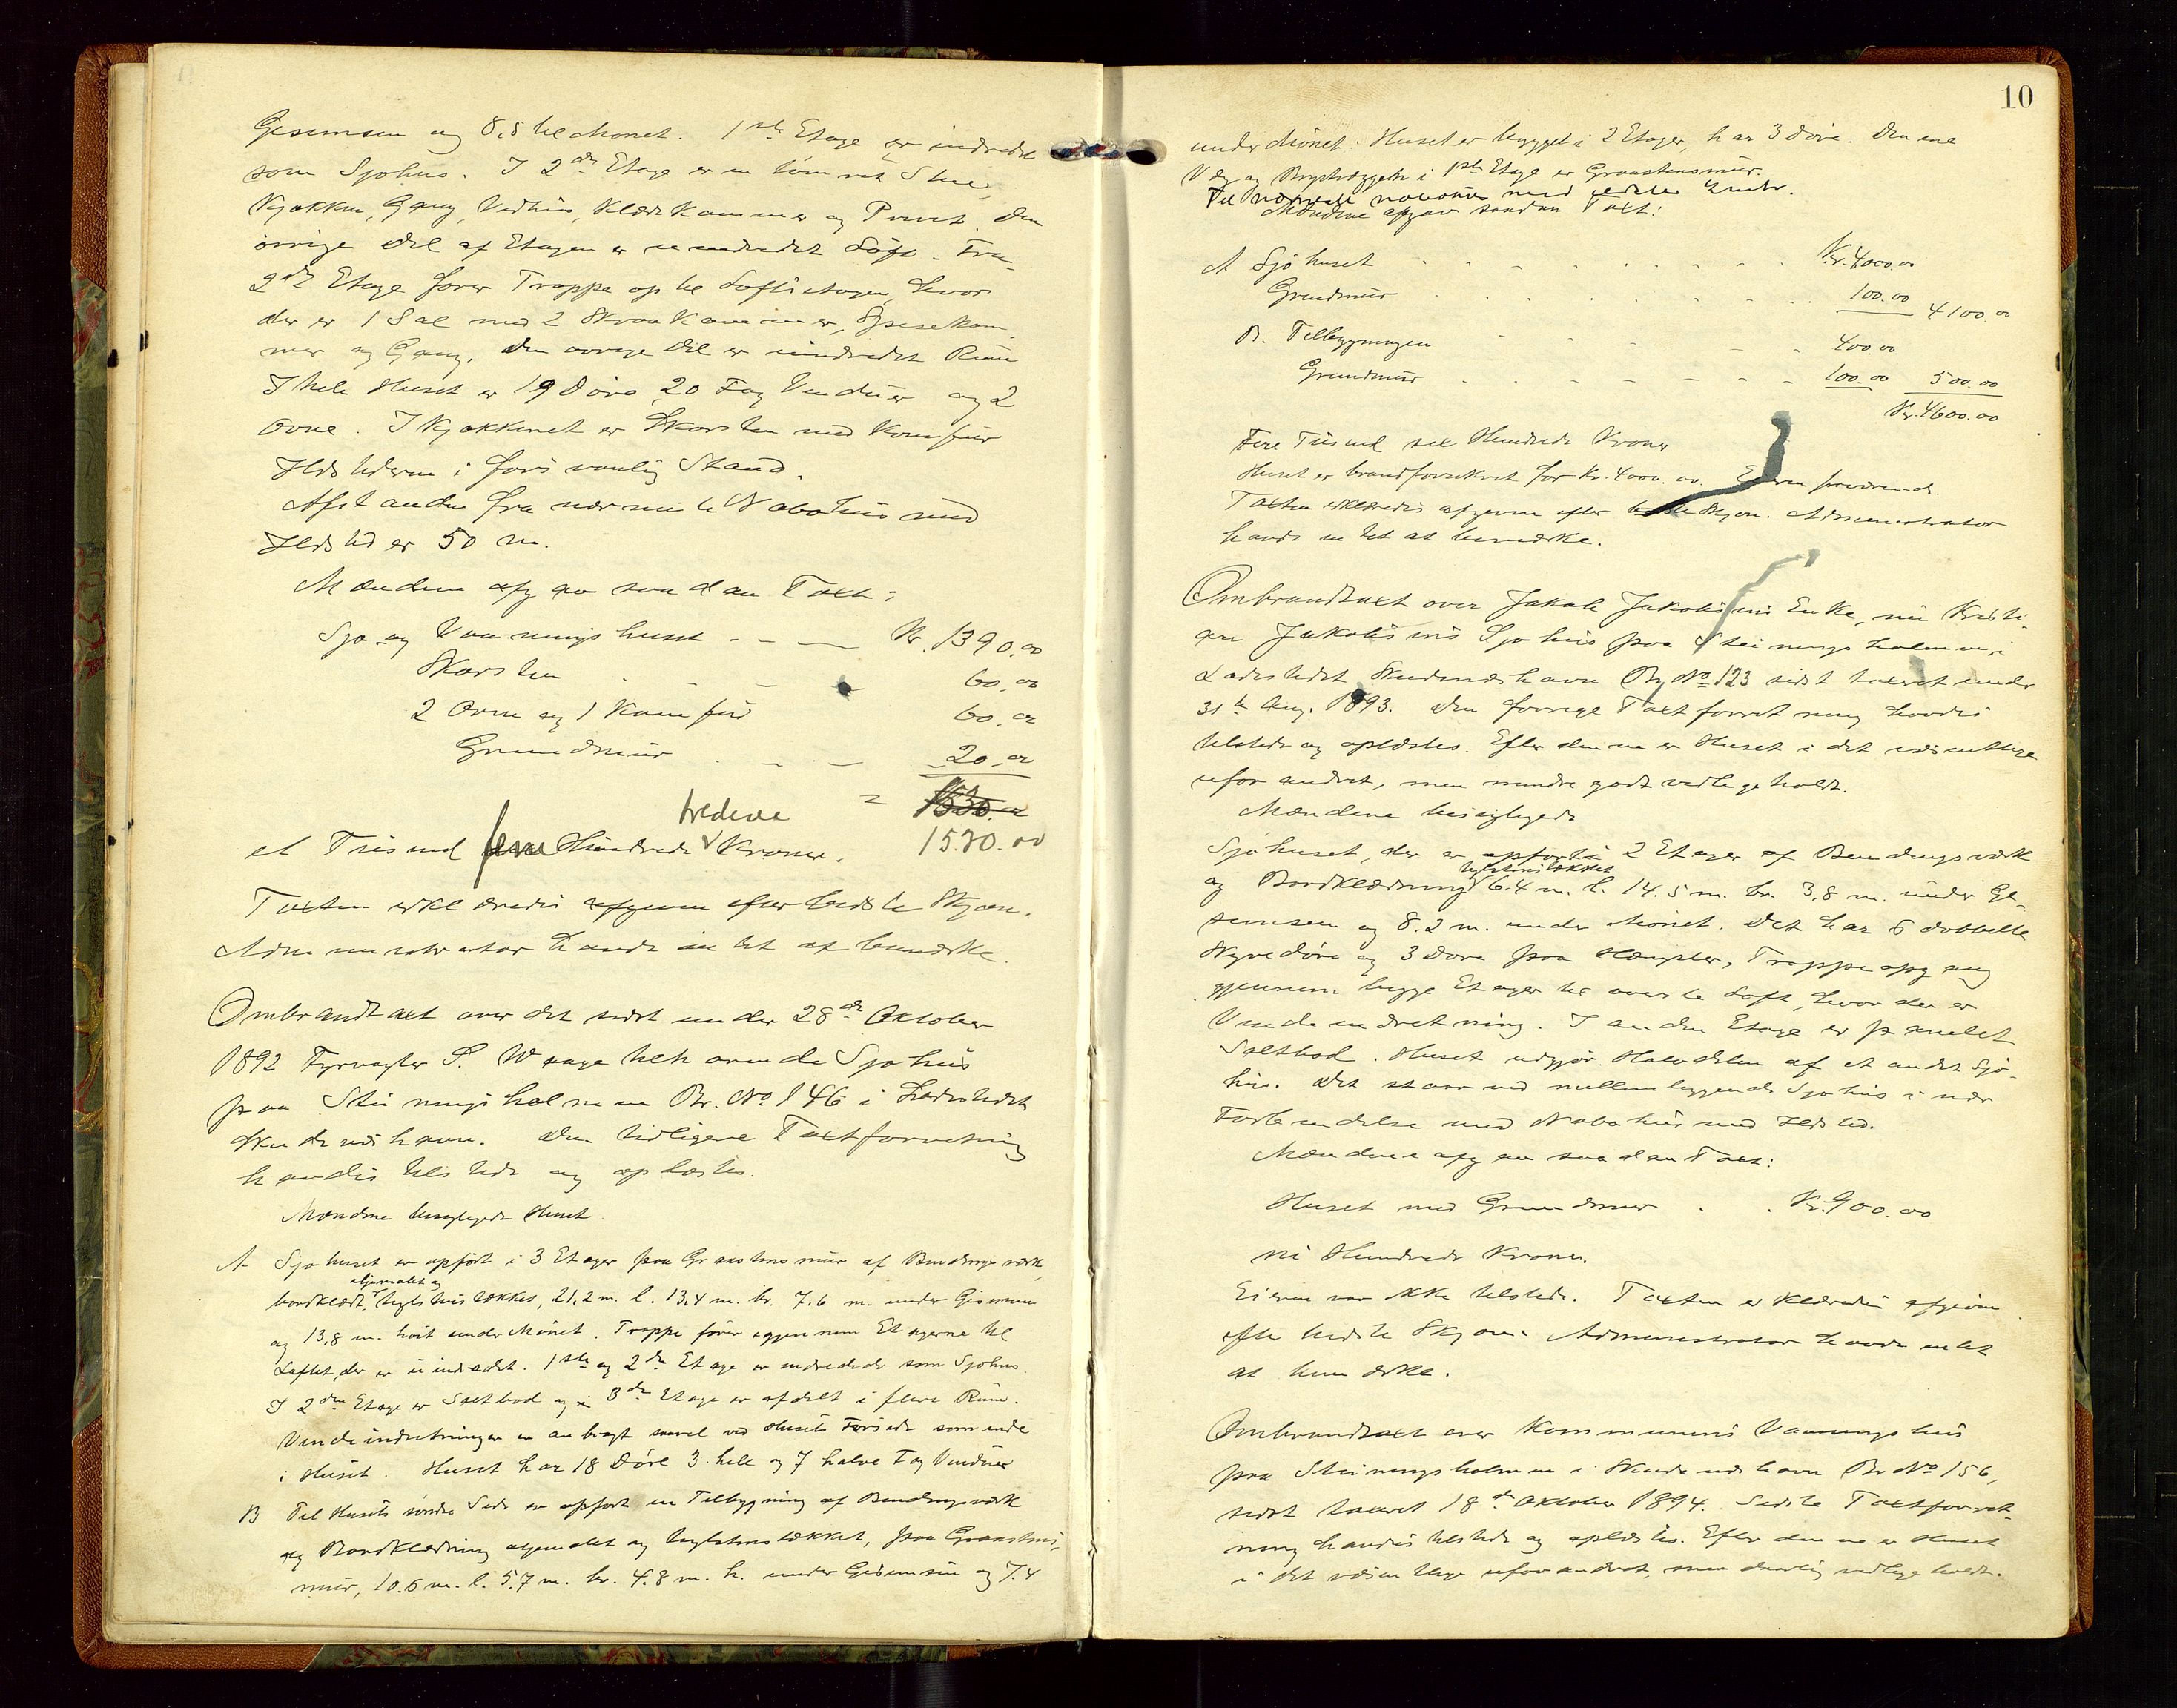 Gesimsen og 8,5 til Mønet. 1ste Etage er indredet
som Sjøhus. I 2den Etage er en tømret Stue,
Kjøkken, Gang, Vedhus, Klædekammer og Privet. Den
øvrige Del af Etagen er uindredet Loft. Fra
2den Etage fører Trappe op til Loftsetagen, hvor
der er 1 Sal med 2 Skraakammer, Spisekam-
mer og Gang. Den øvrige Del er uindredet Rum
I hele Huset er 19 Døre 20 Fag Vinduer og 2
Ovne. I Kjøkkenet er Skorsten med Komfur
Ildstederne i forsvarlig Stand.
Afstanden fra nærmeste Nabohus med
Ildsted er 50 m.
Mændene afgav saadan Taxt:
Sjø og Vaaningshuset - - — Kr. 1390.00
Skorsten 60.00
2 Ovne og 1 Komfur 60.00
Grundmur 20.00
= 1530.00
tredive
et Tusend fem Hundrede Kroner. 1530.00
Taxten erklæredes afgiven efter bedste Skjøn.
Administrator havde intet at bemærke.
Ombrandtaxt over det sidst under 28de Oktober
1892 Fyrvogter S. Waage tilhørende Sjøhus
paa Steiningsholmen Br. No 146 i Ladestedet
Skudeneshavn. Den tidligere Taxtforretning
havdes tilstede og oplæstes.
Mændene besigtigede Huset
A Sjøhuset er opført i 3 Etager paa Graastensmur af Bindingsværk,
oljemalet og
bordklædt, teglstenstækket, 21,2 m. l. 13,4 m. br. 7,6 m. under Gesimsen
og 13,8 m. høit under Mønet. Trappe fører igjennem Etagerne til
Loftet, der er uindredet. 1ste og 2den Etage er indredede som Sjøhus.
I 2den Etage er Saltbod og i 3de Etage er afdelt i flere Rum.
Vindeindretninger er anbragt saavel ved Husets Forside som inde
i Huset. Huset har 18 Døre 3 hele og 7 halve Fag Vinduer
B Til Husets søndre Side er opført en Tilbygning af Bindingsværk
og Bordklædning oljemalet og teglstenstækket, paa Graastens-
mur, 10.6 m. l. 5.7 m. br. 4.8 m. h. under Gesimsen og 7.4
10
under Mønet. Huset er bygget i 2 Etager, har 3 Døre. Den ene
Væg og Brystvæggen i 1ste Etage er Graastensmur.
Til nærmeste nabohus med ildsted
Mændene afgav saadan Taxt:
A Sjøhuset Kr. 4000.00
Grundmur 100.00 4100.00
B. Tilbygningen 400.00
Grundmur 100.00 500.00
Kr. 4600.00
Fire Tusend sex Hundrede Kroner
Huset er brandforsikret for Kr. 4000.00. Eieren fraværende.
Taxten erklæredes afgiven efter bedste Skjøn. Administrator
havde intet at bemærke.
Ombrandtaxt over Jakob Jakobsens Enke, nu Kristi-
an Jakobsens Sjøhus paa Steiningsholmen i
Ladestedet Skudeneshavn Br No 123 sidst taxeret under
31te Aug. 1893. Den forrige Taxtforretning havdes
tilstede og oplæstes. Efter denne er Huset i det væsentlige
uforandret, men mindre godt vedligeholdt.
Mændene besigtigede
Sjøhuset, der er opført i 2 Etager af Bindingsværk
teglstenstækket
og Bordklædning 6.4 m. l. 14.5 m. br. 3,8 m. under Ge-
simsen og 8.2 m. under Mønet. Det har 6 dobbelte
Skyvedøre og 3 Døre paa Hængsler, Trappeopgang
gjennem begge Etager til øverste Loft, hvor der er
Vindeindretning. I anden Etage er panelet
Saltbod. Huset udgjør Halvdelen af et andet Sjø-
hus. Det staar ved mellemliggende Sjøhus i nær
Forbindelse med Nabohus med Ildsted.
Mændene afgav saadan Taxt:
Huset med Grundmur . . Kr. 900.00
ni Hundrede Kroner.
Eieren var ikke tilstede. Taxten erklæredes afgiven
efter bedste Skjøn. Administrator havde intet
at bemærke.
Ombrandtaxt over Kommunens Vaaningshus
paa Steiningsholmen i Skudeneshavn Br No 156,
sidst taxeret 18de Oktober 1894. Sidste Taxtforret-
ning havdes tilstede og oplæstes. Efter denne er Huset
i det væsentlige uforandret, men daarlig vedligeholdt.